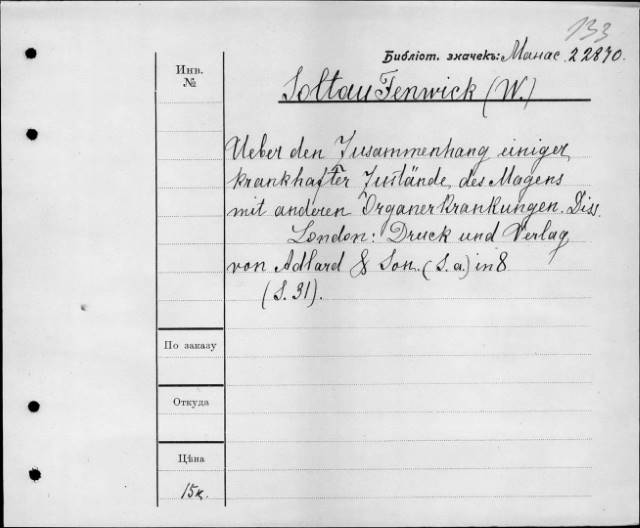 133
Библіот. значекъ: Манас. 22870.
Инв.
№
Soltau Fenwick (W.)
Ueber den Zusammenhang einiger
krankhafter Zustände des Magens
mit anderen Organerkrankungen. Diss.
London: Druck und Verlag
von Adlard & Son. (S. a.) in 8
(S. 31).
По заказу
Откуда
Цѣна
15к.